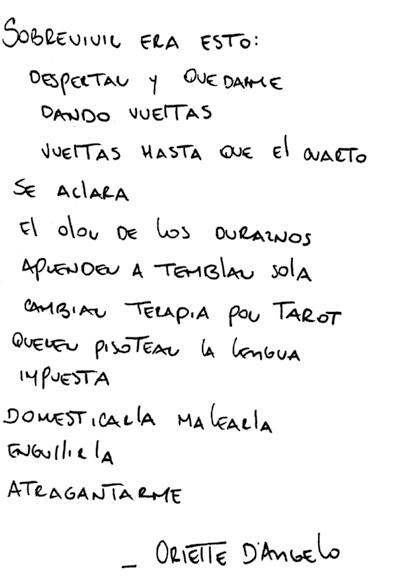 SOBREVIVIR ERA ESTO:
DESPERTAR Y QUEDARME
DANDO VUELTAS
VUELTAS HASTA QUE El CUARTO
SE AClARA
El olor DE los DURAZNOS
APRENDER A TEMBlAR sola
CAMBIAR TERAPIA POR TAROT
QUERER PISOTEAR lA lENGUA
IMPUESTA
DOMESTICARlA MAlEARlA
ENGUllirlA
ATRAGANTARME
_ ORIETTE D'ANGElo